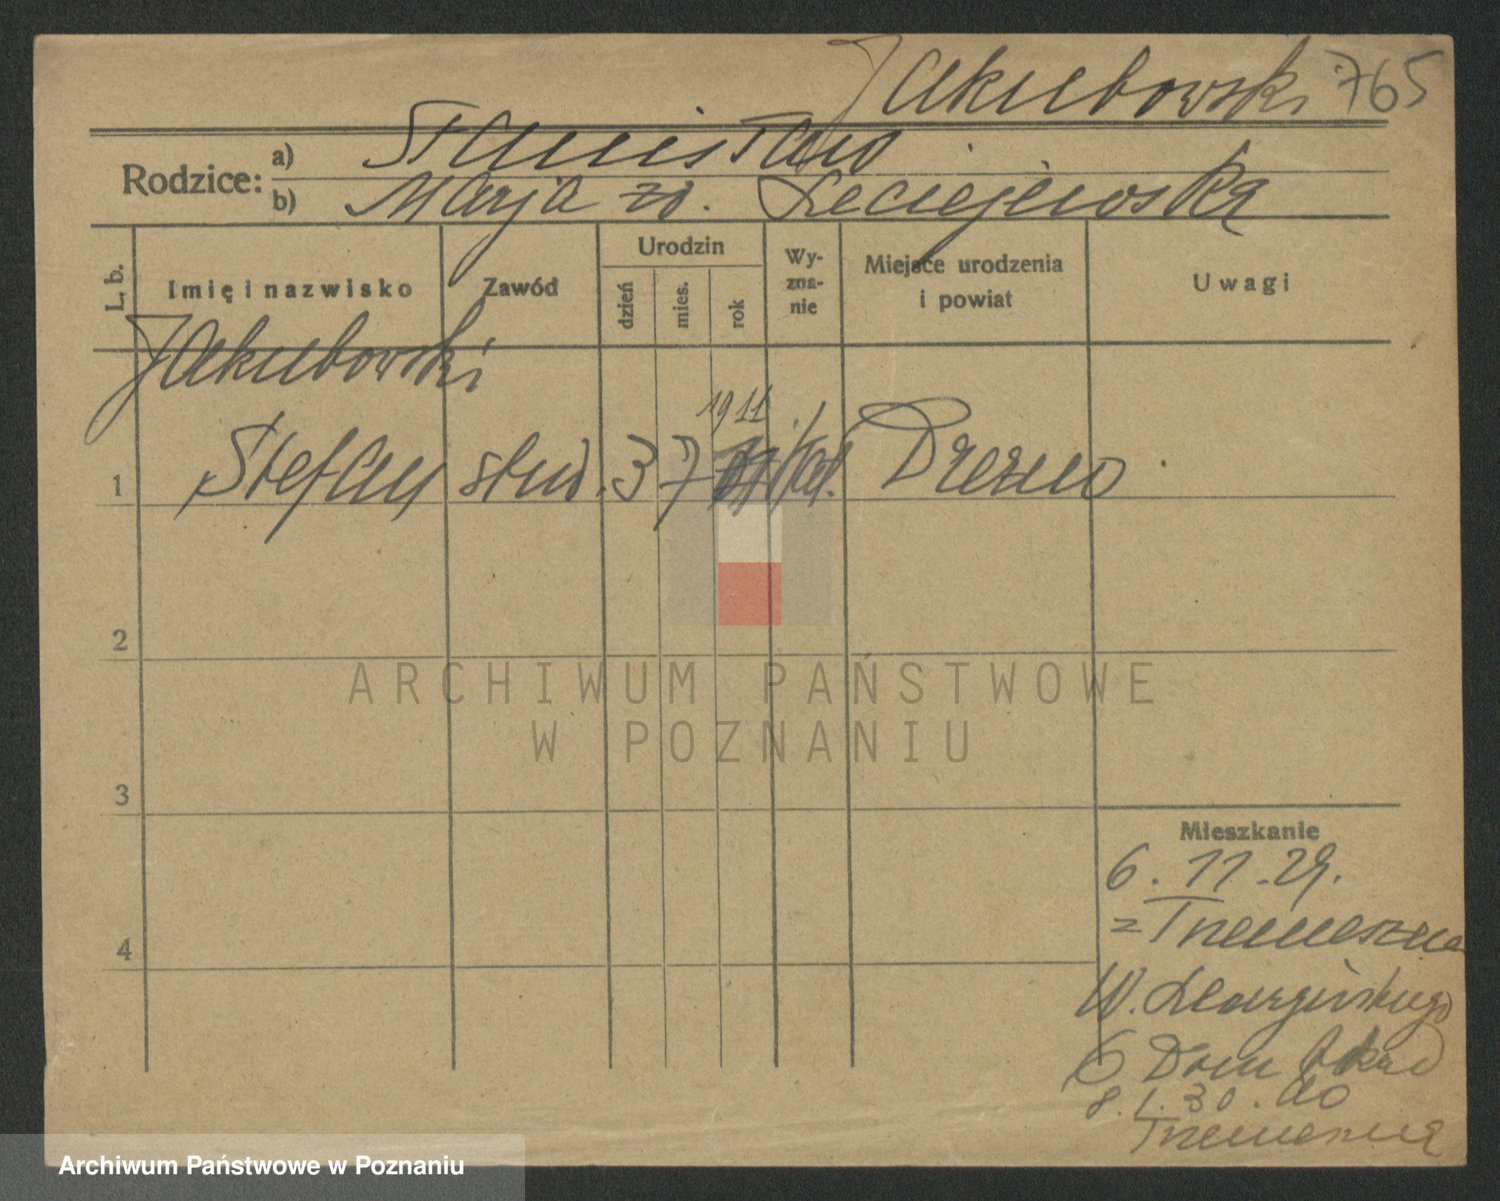 Jakubowski 765
Rodzice:
a) Stanisław
b) Marja zd. Leciejewska
L. b.
Imię i nazwisko
Zawód
Urodzin
dzień
mies.
rok
Wy-
zna-
nie
Miejsce urodzenia
i powiat
Uwagi
Jakubowski
1911
1 Stefan stud. 3 7 kat. Drezno
2
3
4
Mieszkanie
6. 11. 29.
z Trzemeszna
W.
6 Dom Akad
8. 1. 30. do
Trzemeszna
ARCHIWUM PAŃSTWOWE
W POZNANIU
Archiwum Państwowe w Poznaniu